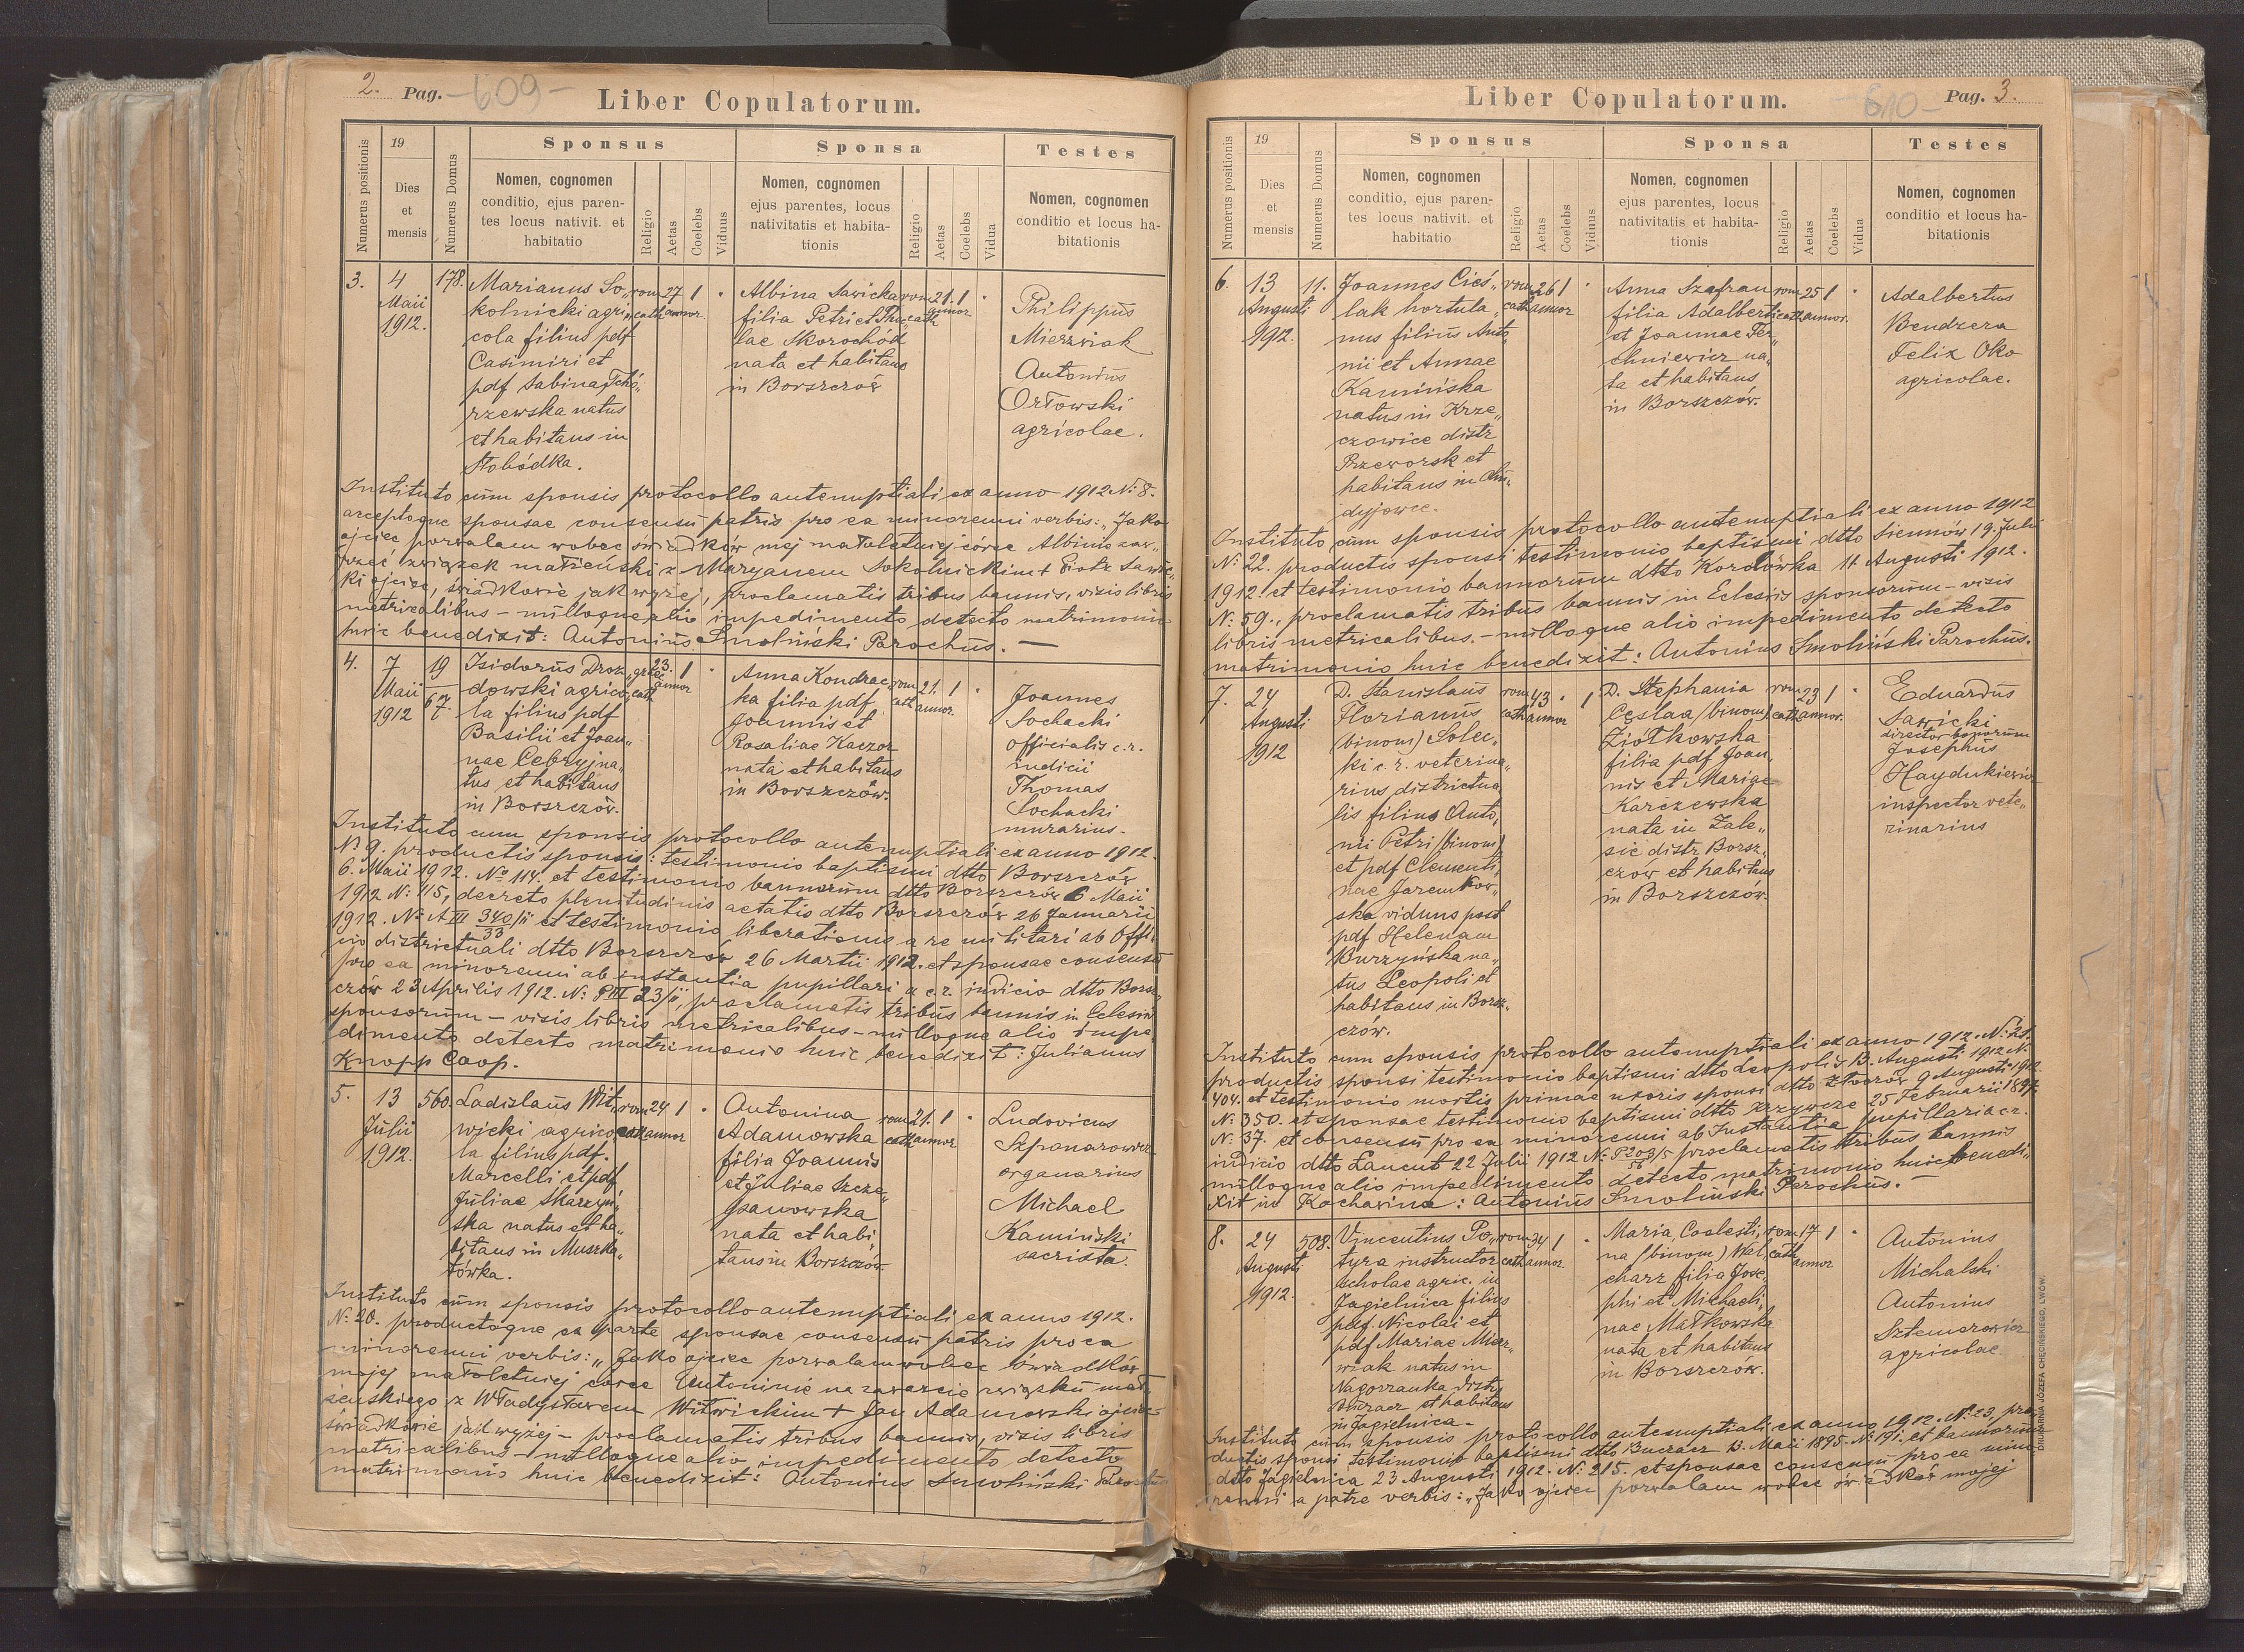 2. Pag. -609-
Liber Copulatorum.
Numerus positionis
19
Dies
et
mensis
Numerus Domus
Sponsus
Nomen, cognomen
conditio, ejus paren-
tes locus nativit. et
habitatio
Religio
Aetas
Coelebs
Viduus
Sponsa
Nomen, cognomen
ejus parentes, locus
nativitatis et habita-
tionis
Religio
Aetas
Coelebs
Vidua
Testes
Nomen, cognomen
conditio et locus ha-
bitationis
3.
4
Maii
1912.
178.
Marianus So„
kolnicki agri„
cola filius pdf
Casimiri et
pdf Sabina Tchó„
rzewska natus
et habitans in
Słobódka.
rom
cath
27
annor.
1
Albina Sawicka
filia Petri et Thec„
lae Skorochód
nata et habitans
in Borszczów
rom
cath
21.
annor
1
Philippus
Mierzwiak
Antonius
Orłowski
agricolae.
Instituto cum sponsis protocollo antenuptiali ex anno 1912 N: 8.
acceptoque sponsae consensu patris pro ea minorenni verbis: „Jako
ojciec pozwalam wobec świadków mej małoletniej córce Albinie zaw„
rzeć związek małżeński z Maryanem Sokolnickim + Piotr Sawic„
ki ojciec, świadkowie jak wyżej, proclamatis tribus bannis, visis libris
metricalibus – nulloque alio impedimento detecto matrimonio
huic benedixit: Antonius Smoliński Parochus. —
4.
7
Maii
1912
19
67.
Isidorus Droz„
dowski agrico„
la filius pdf
Basilii et Joan„
nae Cebryj na„
tus et habitans
in Borszczów.
gr.
cath
23.
annor
1
Anna Kondrac„
ka filia pdf
Joannis et
Rosaliae Kaczor
nata et habitans
in Borszczów.
rom
cath
21.
annor.
1
Joannes
Sochacki
officialis c.r.
iudicii
Thomas
Sochacki
murarius.
Instituto cum sponsis protocollo antenuptiali ex anno 1912.
N: 9. productis sponsis: testimonio baptismi dtto Borszczów
6. Maii 1912. No 114. et testimonio bannorum dtto Borszczów 6 Maii
1912 N: 115, decreto plenitudinis aetatis dtto Borszczów 26 Januarii
1912. No A III 340/33/11 et testimonio liberationis a re militari ab Offi„
cio districtuali dtto Borszczów 26 Martii 1912. et sponsae consensu
pro ea minorenni ab instantia pupillari a c.r. iudicio dtto Borsz„
czów 23 Aprilis 1912. N: P III 23/11, proclamatis tribus bannis in Eclesiis
sponsorum – visis libris metricalibus – nulloque alio impe„
dimento detecto matrimonio huic benedixit: Julianus
Knopp Coop.
5.
13
Julii
1912.
560.
Ladislaus Wit„
wicki agrico„
la filius pdf.
Marcelli et pdf
Juliae Skarzyń„
ska natus et ha„
bitans in Muszka„
tówka.
rom
cath
24
annor
1
Antonina
Adamowska
filia Joannis
et Juliae Szcze„
panowska
nata et habi„
tans in Borszczów.
rom
cath
21.
annor
1
Ludovicus
Szponarowicz
organarius
Michael
Kamiński
sacrista.
Instituto cum sponsis protocollo antenuptiali ex anno 1912.
N: 20. productoque ex parte sponsae consensu patris pro ea
minorenni verbis: „Jako ojciec pozwalam wobec świadków
mojej małoletniej córce Antoninie na zawarcie związku mał„
żeńskiego z Władysławem Witwickim + Jan Adamowski ojciec
świadkowie jak wyżej – proclamatis tribus bannis, visis libris
metricalibus – nulloque alio impedimento detecto
matrimonio huic benedixit: Antonius Smoliński Parochus
Liber Copulatorum.
-610-
Pag. 3.
Numerus positionis
19
Dies
et
mensis
Numerus Domus
Sponsus
Nomen, cognomen
conditio, ejus paren-
tes locus nativit. et
habitatio
Religio
Aetas
Coelebs
Viduus
Sponsa
Nomen, cognomen
ejus parentes, locus
nativitatis et habita-
tionis
Religio
Aetas
Coelebs
Vidua
Testes
Nomen, cognomen
conditio et locus ha-
bitationis
6.
13
Augusti
1912.
11.
Joannes Cieś„
lak hortula„
nus filius Anto„
nii et Annae
Kamińska
natus in Krze„
czowice distr
Przeworsk et
habitans in
rom
cath
26
annor
1
Anna Szafran
filia Adalberti
et Joannae Ter„
chniewicz na„
ta et habitans
in Borszczów.
rom
cath
25
annor.
1
Adalbertus
Bendzera
Felix Oko
agricolae.
Instituto cum sponsis protocollo antenuptiali ex anno 1912
N: 22. productis sponsi testimonio baptismi dtto Siennów 19. Julii
1912. et testimonio bannorum dtto Korolówka 11 Augusti 1912.
N: 59., proclamatis tribus bannis in Eclesiis sponsorum – visis
libris metricalibus. – nulloque alio impedimento detecto
matrimonio huic benedixit: Antonius Smoliński Parochus.
7.
24
Augusti
1912
D. Stanislaus
Florianus
(binom) Solec„
ki c.r. veterina„
rius districtua„
lis filius Anto„
nii Petri (binom)
et pdf Clementi„
nae Jaremkow„
ska viduus post
pdf Helenam
Burzyńska na„
tus Leopoli et
habitans in Borsz„
czów.
rom
cath
43
annor
1
D. Stephania
Ceslaa (binom)
Ziółkowska
filia pdf Joan„
nis et Mariae
Karczewska
nata in Zale„
sie distr Borsz„
czów et habitans
in Borszczów.
rom
cath
23
annor.
1
Eduardus
Sawicki
director bonorum
Josephus
Haydukiewicz
inspector vete„
rinarius
Instituto cum sponsis protocollo antenuptiali ex anno 1912. N: 21.
productis sponsi testimonio baptismi dtto Leopolis 13. Augusti 1912 N:
404. et testimonio mortis primae uxoris sponsi dtto 9 Augusti 1912
N: 350. et sponsae testimonio baptismi dtto Krzywcze 25 Februarii 1897.
N: 37. et consensu pro ea minorenni ab Instantia pupillari a c.r.
iudicio dtto Lancut 22 Julii 1912 N: P 203/5/56 proclamatis tribus bannis
nulloque alio impedimento detecto matrimonio huic benedi„
xit in Kochawina: Antonius Smoliński Parochus. —
8.
24
Augusti
1912.
508.
Vincentius Po„
tyra instructor
scholae agric. in
Jagielnica filius
pdf. Nicolai et
pdf Mariae Mierz„
wiak natus in
Nagorzanka distr
Buczacz et habitans
in Jagielnica.
rom
cath
34
annor.
1
Maria Coelesti„
na (binom) Wal„
charz filia Jose„
phi et Michaeli„
nae Małkowska
nata et habitans
in Borszczów.
rom
cath
17
annor
1
Antonius
Michalski
Antonius
Sztemorowicz
agricolae.
Instituto cum sponsis protocollo antenuptiali ex anno 1912. N: 23, pro„
ductis sponsi testimonio baptismi dtto Buczacz 13. Maii 1895. N: 191. et bannorum
dtto Jagielnica 23 Augusti 1912. N: 215. et sponsae consensu pro ea mino„
renni a patre verbis: „Jako ojciec pozwalam wobec świadków mojej
DRUKARNIA JÓZEFA CHĘCIŃSKIEGO, LWÓW.